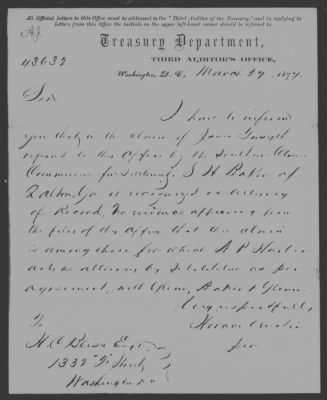 All Official Letters to this Office must be addressed to the "Third Auditor of the Treasury," and in replying to
Letters from this Office the initials on the upper left-hand corner should be referred to.
Treasury Department,
THIRD AUDITOR'S OFFICE,
43632
Washington, D. C., March 29, 1877.
Sir
I have to inform
you that in the claim of James
referred to this Office by the Southern Claims
Commission for settlement, S H Baker of
Dalton Ga is recognized as attorney
of Record, no evidence appearing from
the files of this Office that the claim
is among those for which A P
acts as attorney by substitution as per
agreement, with Glenn, Baker & Glenn
Very respectfully,
Horace Austin
To
Esqr
1332 "F" Street
Washington DC